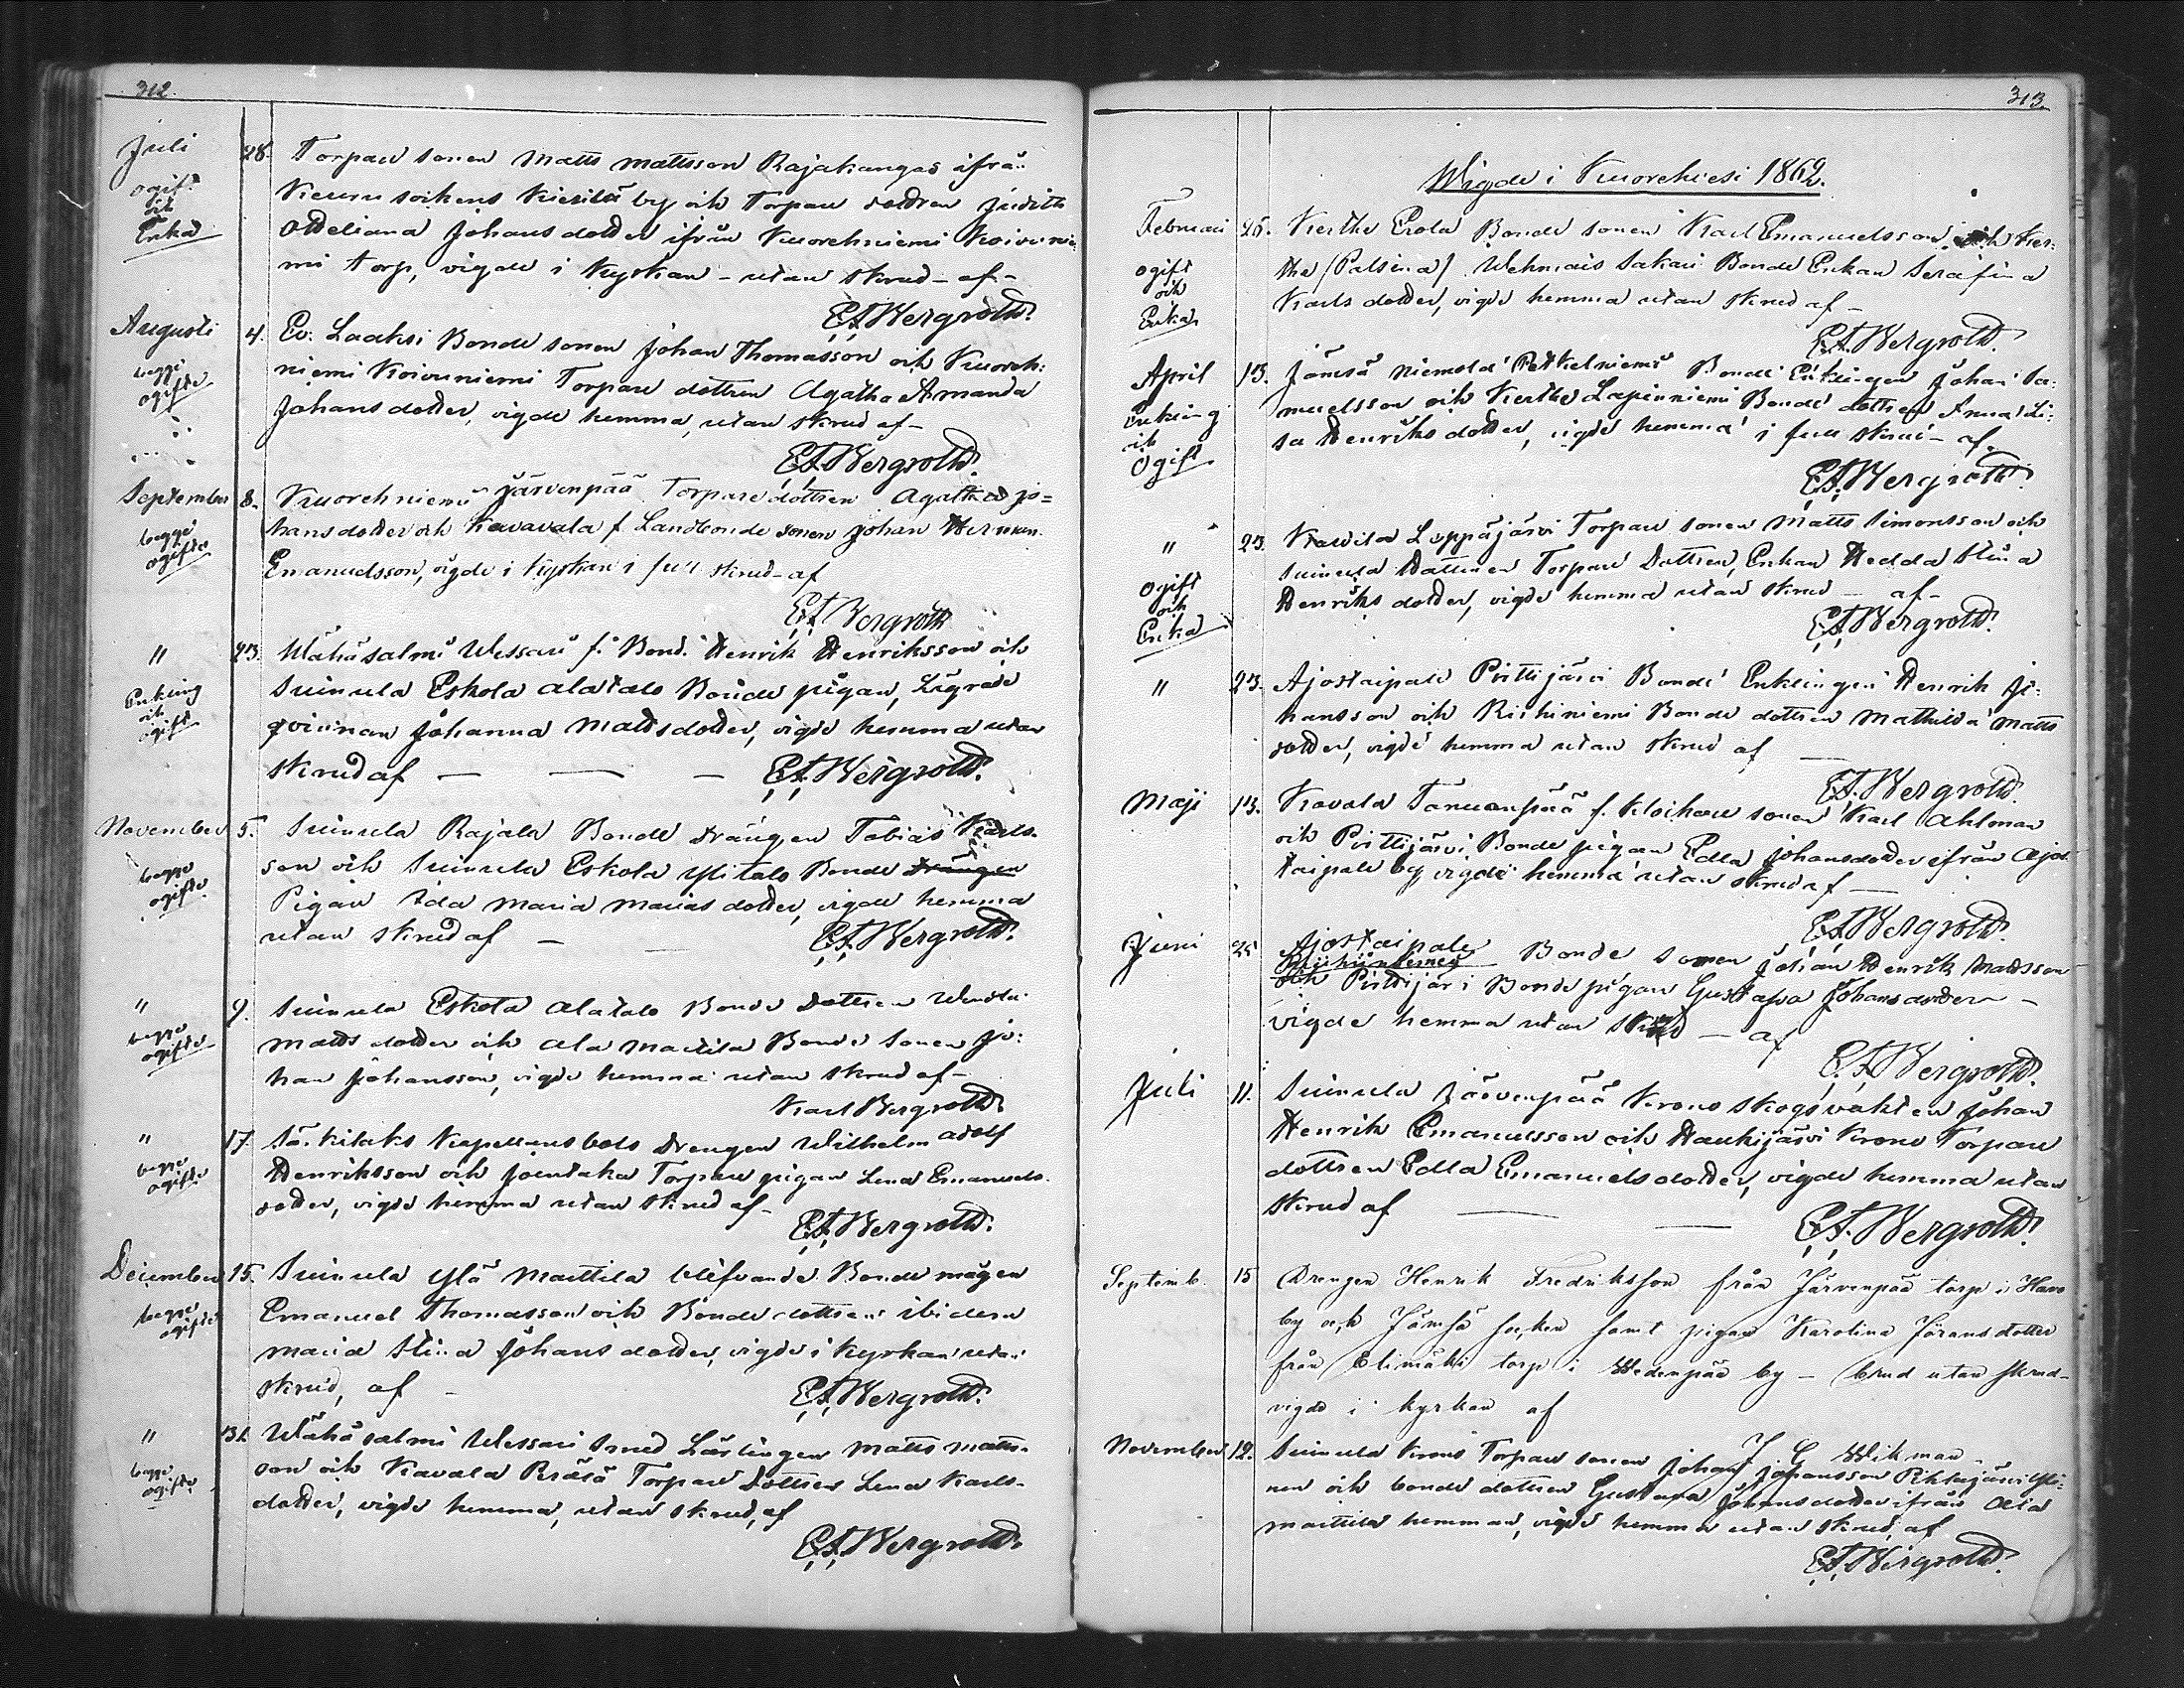 312.
Juli 28. Torpare sonen Matts Mattsson Rajakangas ifrån
ogift och Enka
Keuru sockens by och Torpare dottren Judith
Adeliana Johans dotter ifrån Kuorehniemi Koivunie
mi torp, vigde i Kyrkan - utan skrud - af -
E.A. Bergroth.
Augusti 4. Ev. Laaksi Bonde sonen Johan Thomasson och Kuoreh:
begge ogifte
niemi Koivuniemi Torpare dottren Agatha Amanda
Johans dotter, vigde hemma, utan skrud af -
E.A. Bergroth.
September 8. Kuorehniemi Järvenpää Torpare dottren Agatha Jo=
begge ogifte
hans dotter och Kavavala f. Landbonde sonen Johan Herman
Emanuelsson, vigde i Kyrkan i full skrud - af
E.A. Bergroth
" 23. Wähäsalmi Wessari f. Bond. Henrik Henriksson och
Enkling och ogift
Suinula Eskola Alatalo Bonde pigan, Lägrade
qvinnan Johanna Mattsdotter, vigde hemma utan
skrud af — — — E.A. Bergroth.
November 5. Suinula Rajala Bonde Drängen Tobias Karls-
begge ogifte
son och Suinula Eskola Ylitalo Bonde Drängen
Pigan Ida Maria Marias dotter, vigde hemma
utan skrud af — E.A. Bergroth.
" 9. Suinula Eskola Alatalo Bonde Dottren Wendla
begge ogifte
Matts dotter och Ala Mattila Bonde Sonen Jo:
han Johansson, vigde hemma utan skrud af -
Karl Bergroth.
" 17. Särkilaks Kapellansbols Drengen Wilhelm Adolf
begge ogifte
Henriksson och Joentaka Torpare pigan Lena Emanuels
dotter, vigde hemma utan skrud af -
E.A. Bergroth.
December 15. Suinula Ylä Mattila blifvande Bonde mågen
begge ogifte
Emanuel Thomasson och Bonde dottren ibidem
Maria Stina Johans dotter, vigde i Kyrkan utan
skrud, af - E.A. Bergroth.
" 31. Wähäsalmi Wessari Smed Lärlingen Matts Matts-
begge ogifte
son och Kavala Peräsä Torpare Dottren Lena Karls-
dotter, vigde hemma, utan skrud, af
E.A. Bergroth.
313.
Wigde i Kuorehvesi 1862.
Februari 25. Kerthe Erola Bonde sonen Karl Emanuelsson och Ker-
ogift och Enka
the (Palsina) Wehmais Sakari Bonde Enkan Serafina
Karls dotter, vigde hemma utan skrud af -
E.A. Bergroth.
April 13. Jämsä Niemola Petkelniemi Bonde Enklingen Johan Sa:
Enkling och Ogift
muelsson och Kerthe Lapinniemi Bonde dottren Anna Li:
sa Henriks dotter, vigde hemma i full skrud - af.
E.A. Bergroth.
" 23. Loppäjärvi Torpare sonen Matts Simonsson och
ogift och Enka
Suinula Torpare Dottren, Enkan Hedda Stina
Henriks dotter, vigde hemma utan skrud — af -
E.A. Bergroth.
" 23. Ajostaipale Pirttijärvi Bonde Enklingen Henrik Jo:
hansson och Riihiniemi Bonde dottren Mathilda Matts
dotter, vigde hemma utan skrud af —
E.A. Bergroth.
Maji 13. Kavala Tanuanpää f. Klockare sonen Karl Ahlman
och Pirttijärvi Bonde pigan Edla Johansdotter ifrån Ajos-
taipale by, vigde hemma utan skrud af —
E.A. Bergroth.
Juni 25 Ajostaipale Bonde sonen Johan Henrik Mattsson
och Pirttijärvi Bonde pigan Gustafva Johansdotter -
vigde hemma utan skrud — af
E.A. Bergroth.
Juli 11. Suinula Järvenpää Krono skogsvakten Johan
Henrik Emanuelsson och Haukijärvi Krono Torpare
dottren Edla Emanuels dotter, vigde hemma utan
skrud af — — E.A. Bergroth.
Septemb. 15 Drengen Henrik Fredriksson från Järvenpää torp i Havo
by och Jämsä socken samt pigan Karolina Göransdotter
från Elimäki torp i Wedenpää by - brud utan skrud -
vigde i kyrkan af
J. G. Wikman.
November 12. Suinula Krono Torpare sonen Johan Johansson Pihlajärvi Yli:
nen och bonde dottren Gustava Johansdotter ifrån Ala
Mattila hemman, vigde hemma utan skrud, af
E.A. Bergroth.